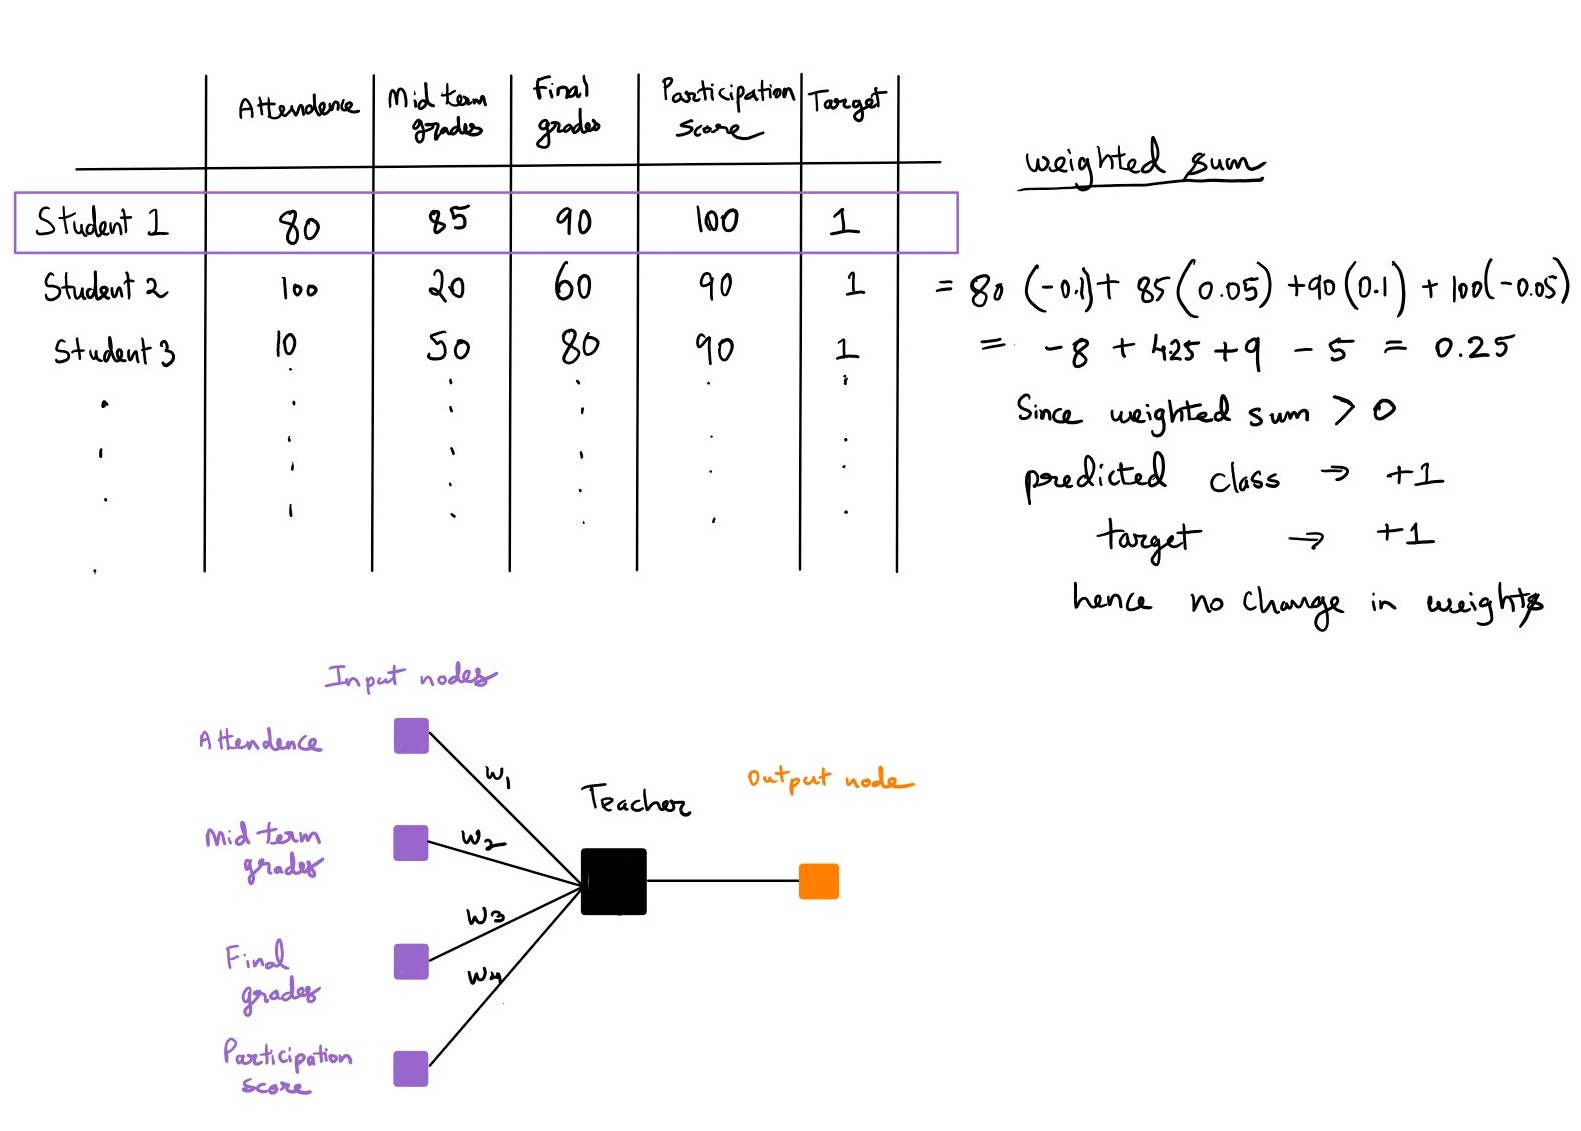 Attendence Mid term grades Final grades Participation score Target
Student 1 80 85 90 100 1
Student 2 100 20 60 90 1
Student 3 10 50 80 90 1
weighted sum
= 80 (-0.1) + 85 (0.05) + 90 (0.1) + 100(-0.05)
= -8 + 4.25 + 9 - 5 = 0.25
Since weighted sum > 0
predicted class → +1
target → +1
hence no change in weights
Input nodes
Attendence
Mid term
grades
Final
grades
Participation
score
w1
w2
w3
w4
Teacher
Output node